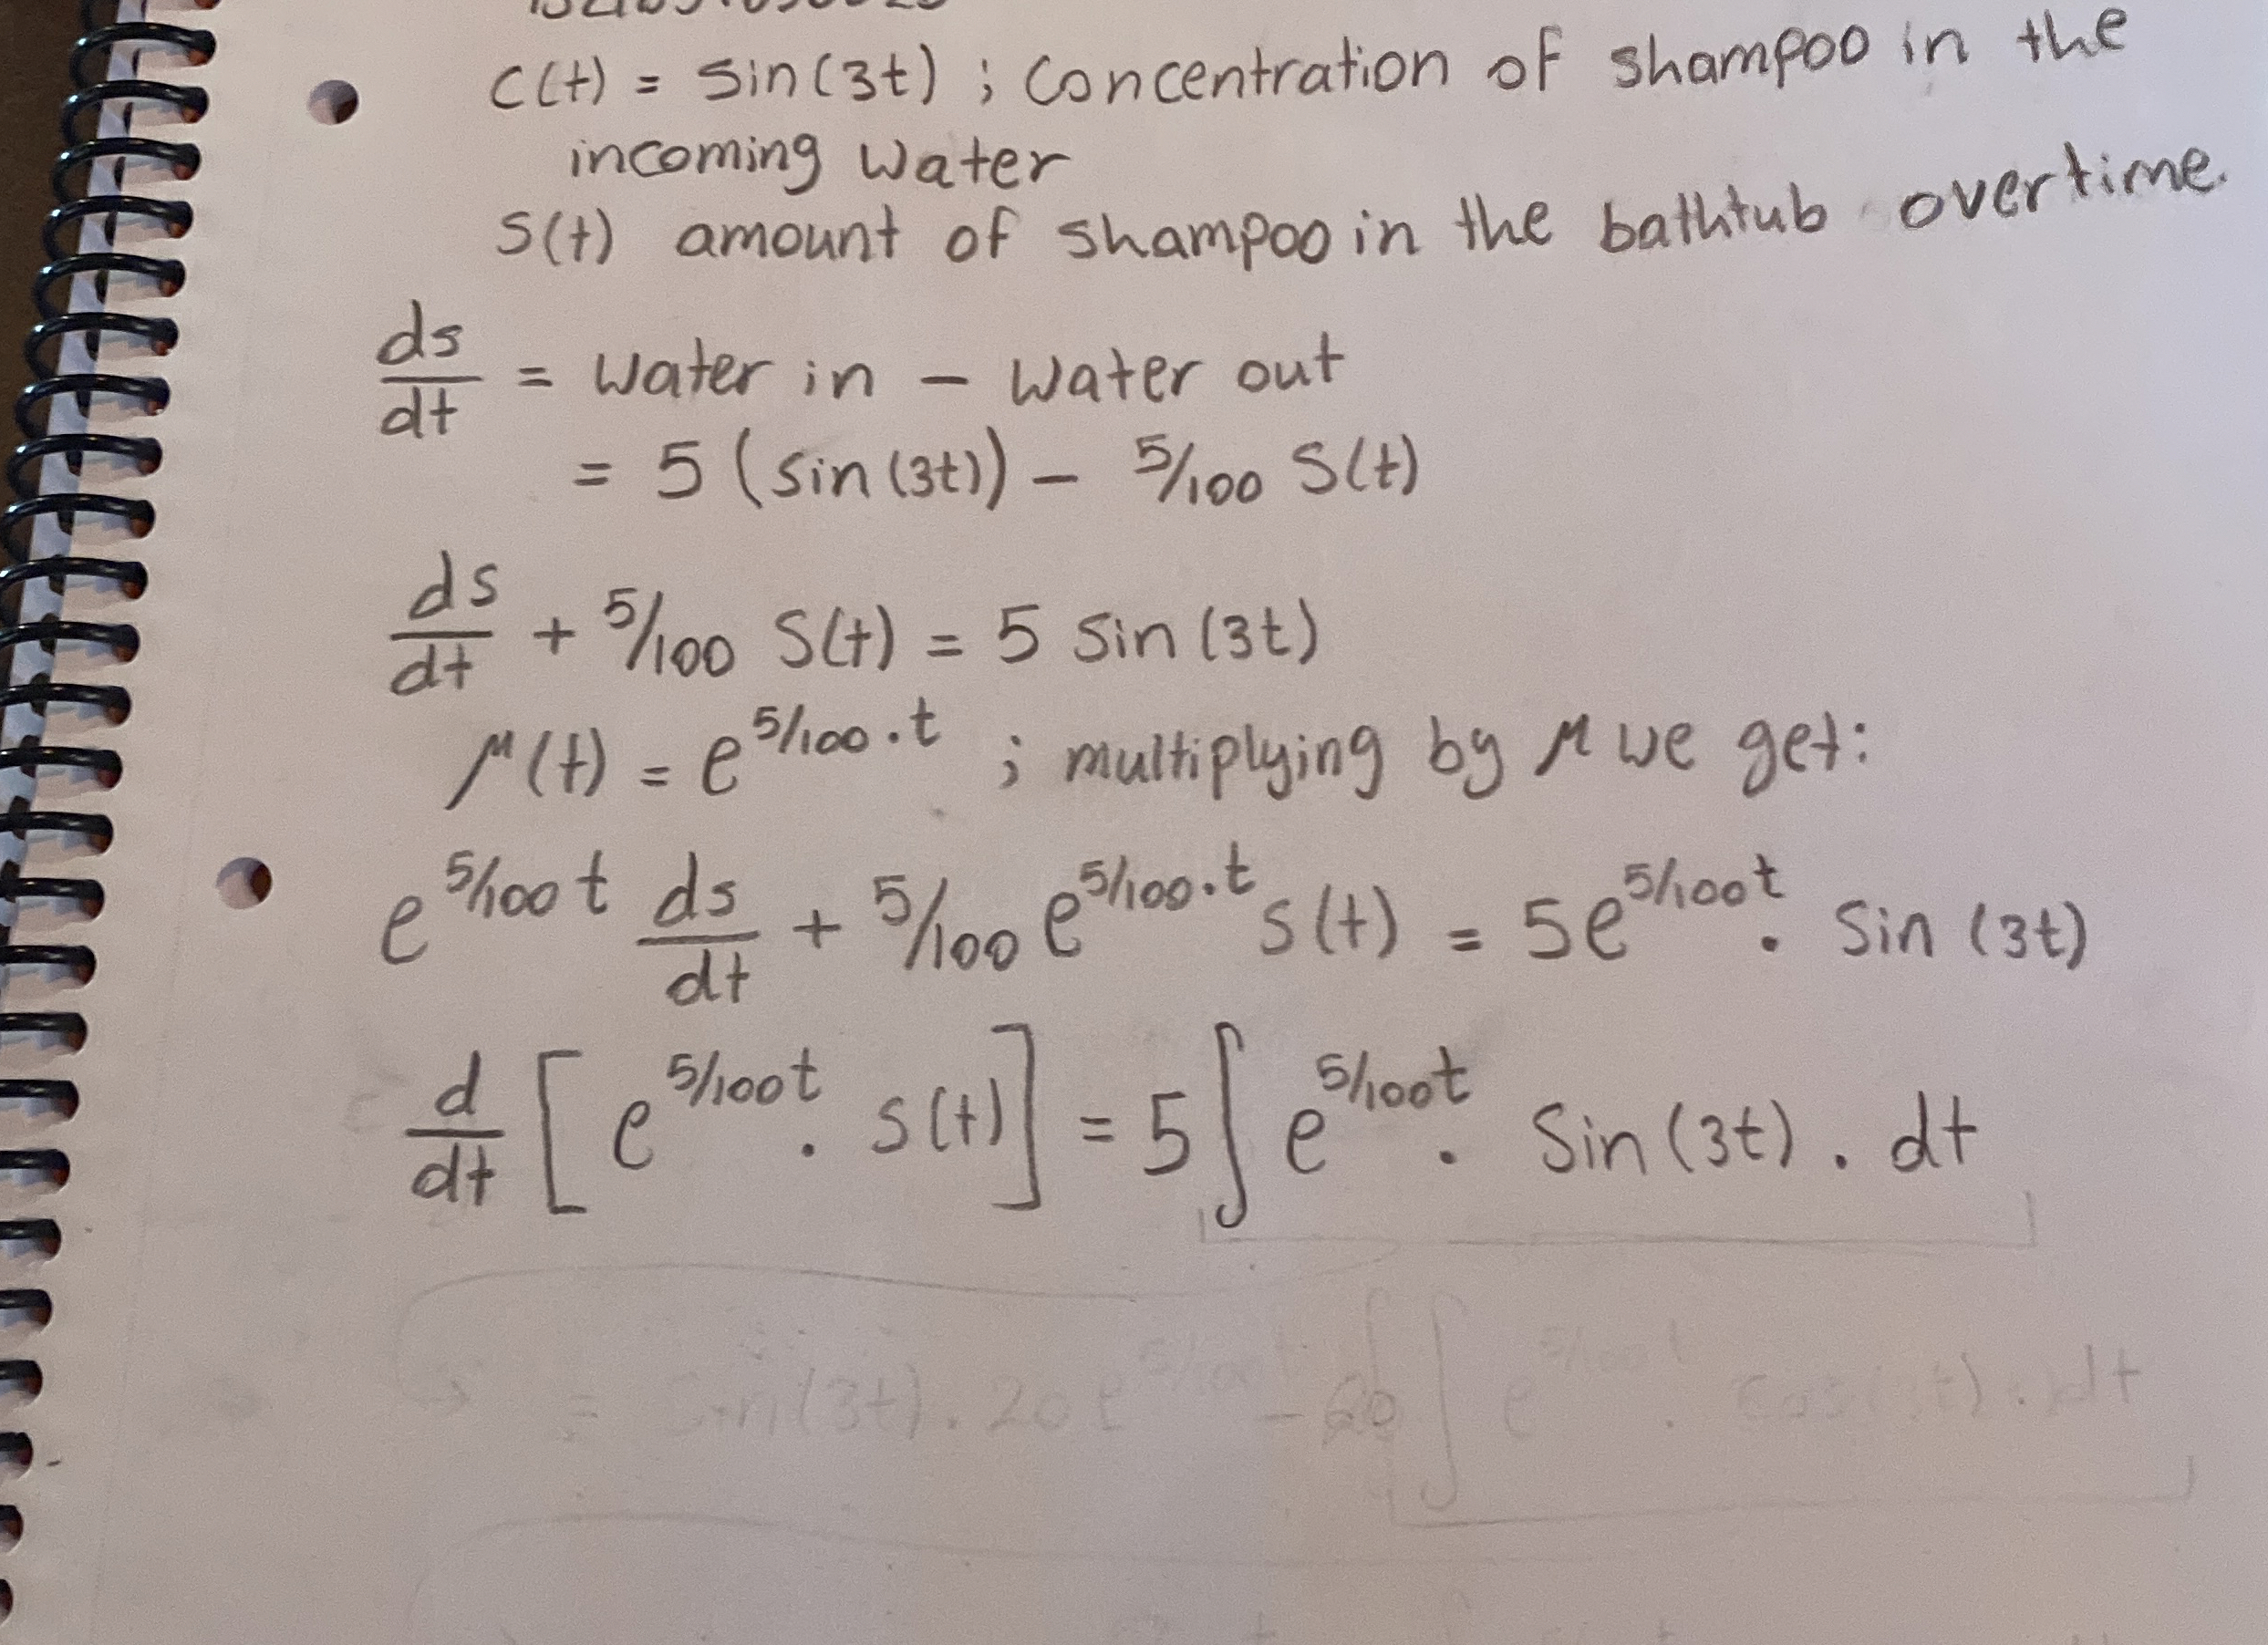 c(t) = sin(3t) ; concentration of shampoo in the
incoming water
S(t) amount of shampoo in the bathtub overtime.
ds/dt = water in - water out
= 5 (sin(3t)) - 5/100 S(t)
ds/dt + 5/100 S(t) = 5 sin(3t)
μ(t) = e^(5/100 · t) ; multiplying by μ we get:
e^(5/100 t) ds/dt + 5/100 e^(5/100 · t) s(t) = 5e^(5/100 t) · sin(3t)
d/dt [ e^(5/100 t) · s(t) ] = 5 ∫ e^(5/100 t) · Sin(3t) . dt
= sin(3t) . 20 e - 60 ∫ e · cos( t) . dt